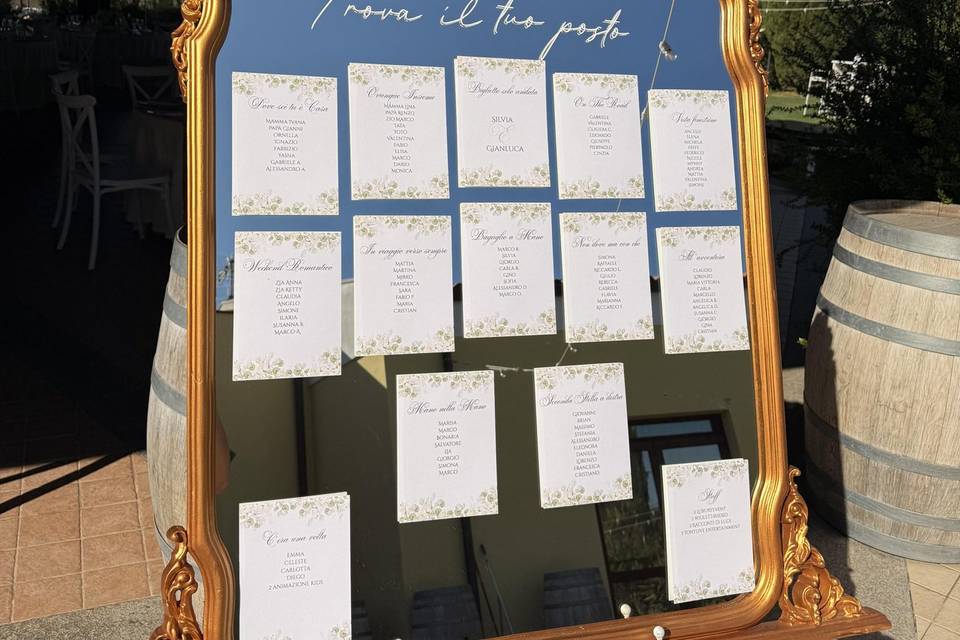 Trova il tuo posto
Dove sei tu è Casa
Mamma Ivana
Papà Gianni
Ornella
Ignazio
Fabrizio
Yasna
Gabriele A.
Alessandro A.
Ovunque Insieme
Mamma Lina
Papà Renzo
Zio Marco
Tata
Toto
Valentina
Fabio
Elisa
Marco
Dario
Monica
Biglietto solo andata
Silvia
&
Gianluca
On The Road
Gabriele
Valentina
Claudia C.
Edoardo
Giuseppe
Pierpaolo
Cinzia
Vista finestrino
Angelo
Elena
Michela
Federico
Nicole
Andrea
Mattia
Valentina
Simone
Weekend Romantico
Zia Anna
Zia Ketty
Claudia
Angelo
Simone
Ilaria
Susanna B.
Marco A.
In viaggio verso sempre
Mattia
Martina
Mirko
Francesca
Sara
Fabio F.
Maria
Cristian
Bagaglio a Mano
Marco R.
Silvia
Giorgio
Carla B.
Gino
Sofia
Alessandro D.
Marco O.
Non dove ma con chi
Simona
Raffaele
Riccardo L.
Giulio
Rebecca
Gabriele
Flavia
Marianna
Riccardo F.
All' avventura
Claudio
Lorenzo
Maria Vittoria
Carla
Marcello
Angelica B.
Angelica D.
Susanna C.
Giorgio
Gina
Cristian
Mano nella Mano
Marisa
Marco
Bonaria
Salvatore
Lia
Giorgio
Simona
Marco
Seconda Stella a destra
Giovanni
Brian
Massimo
Stefania
Alessandro
Eleonora
Daniela
Lorenzo
Francesca
Cristian
C'era una volta
Emma
Celeste
Carlotta
Diego
2 Animazione Kids
Staff
2 Racconti di Luce
2 Tony Live Entertainment